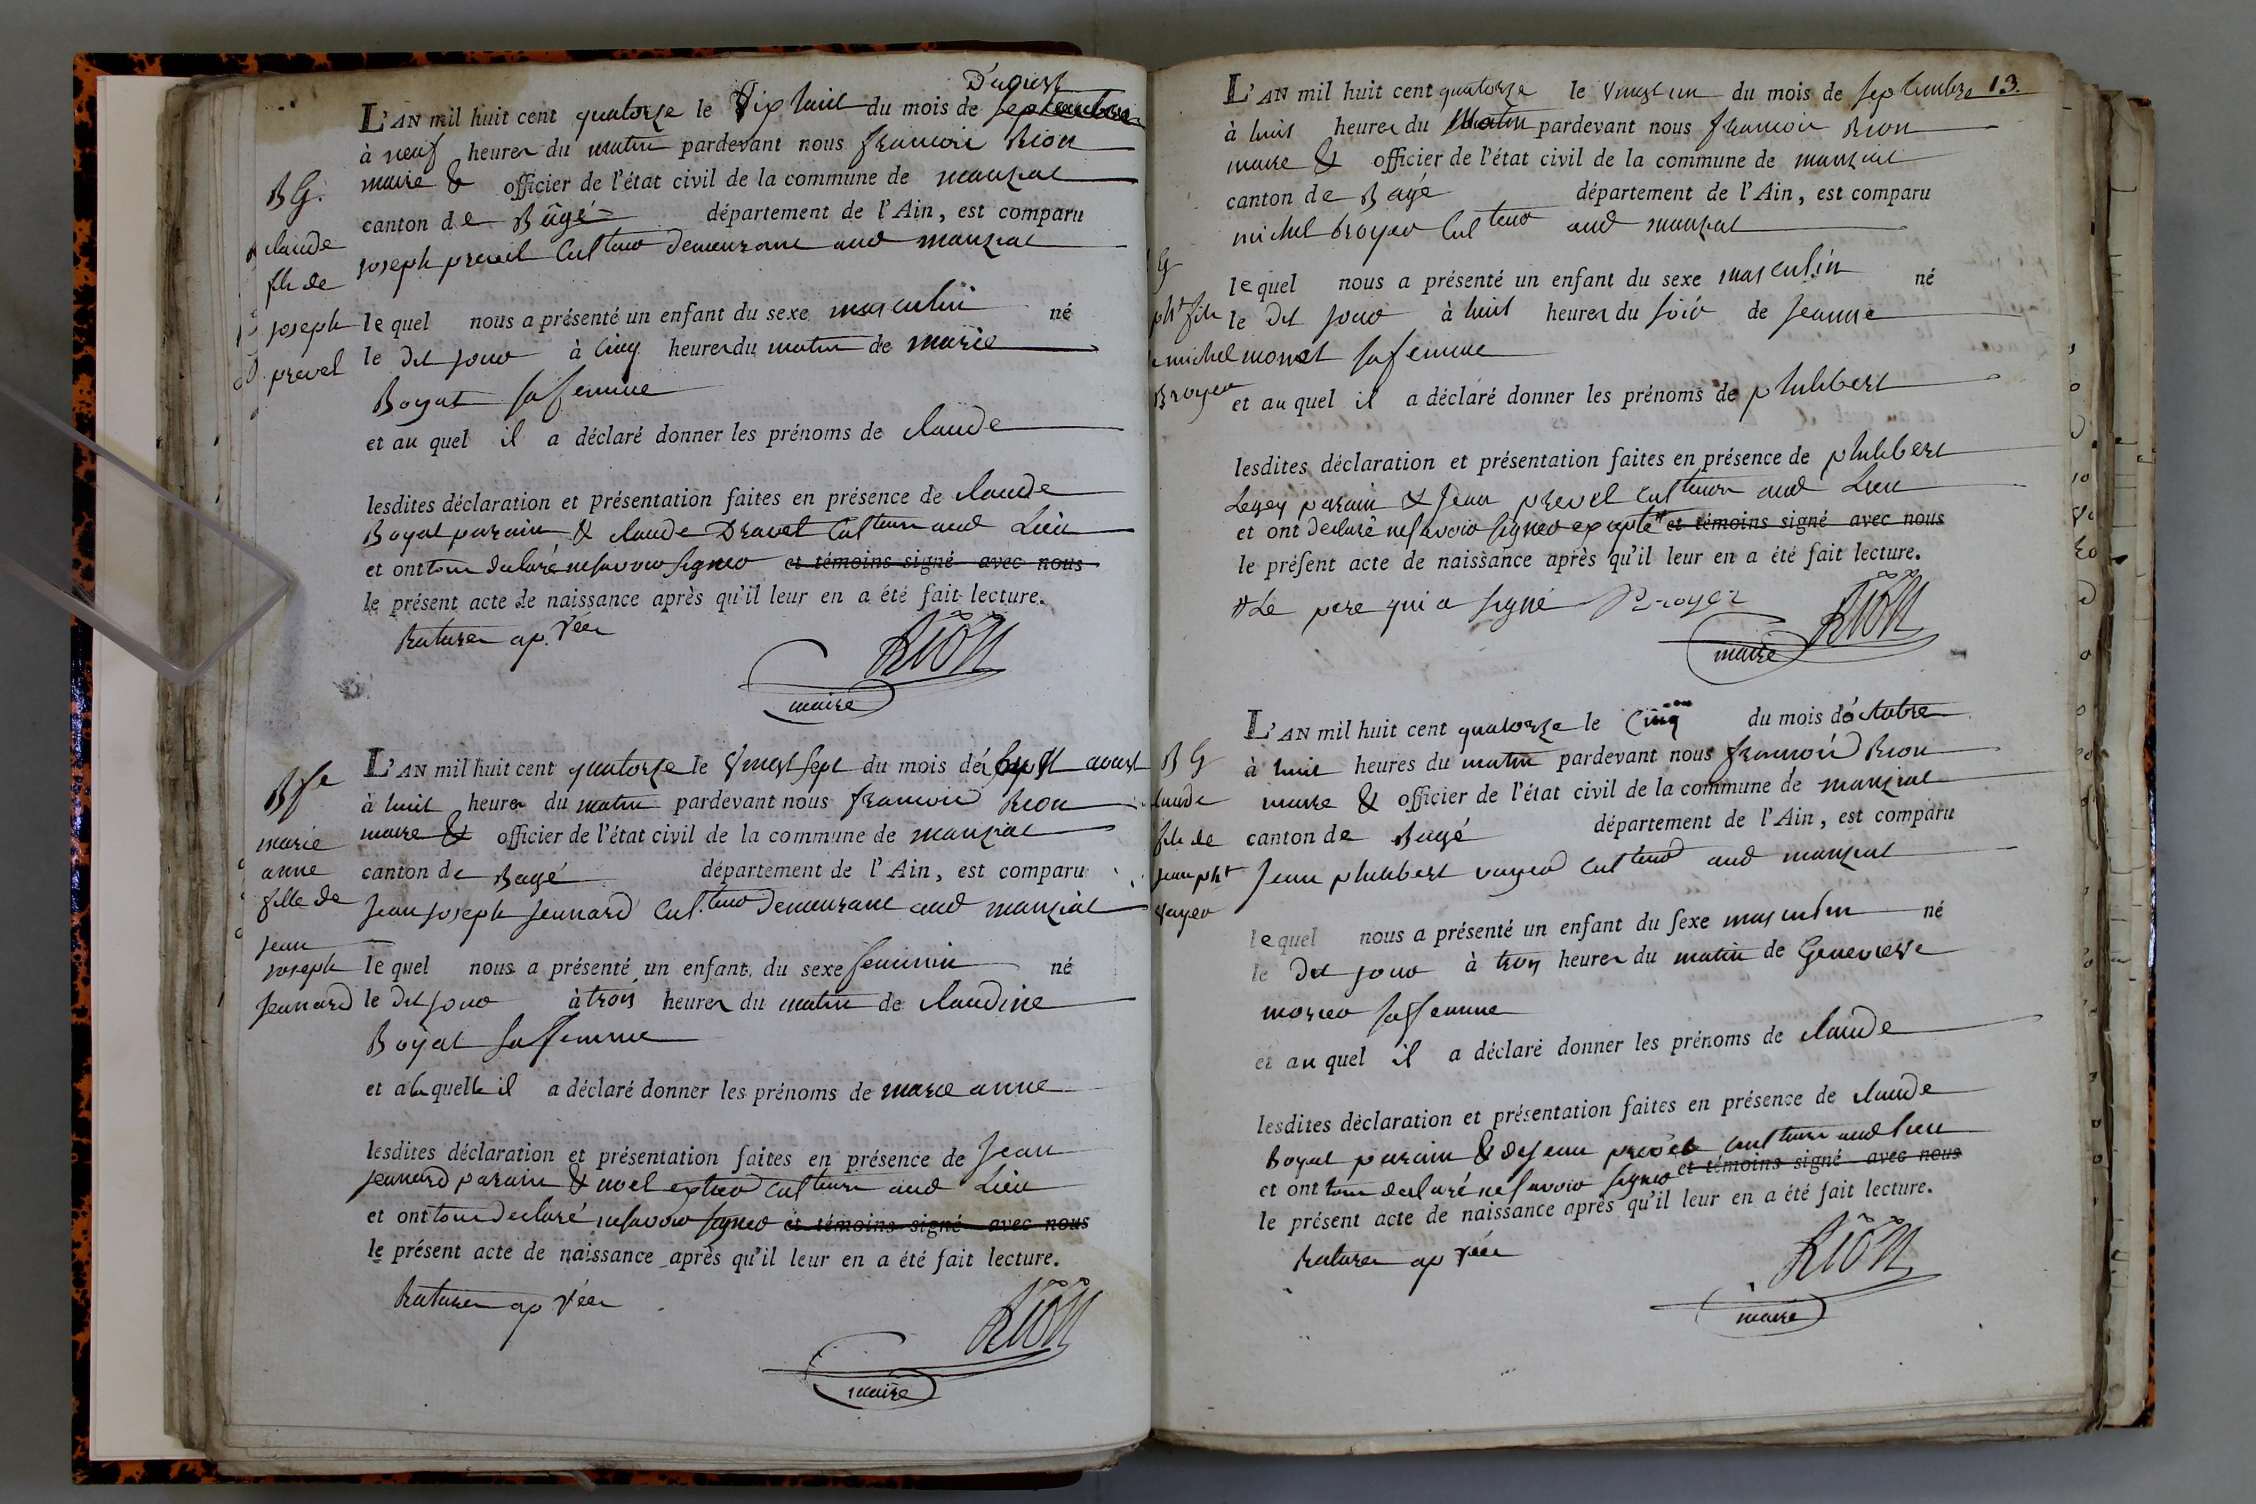 D'aoust
L'AN mil huit cent quatorze le Dix huit du mois de septembre
à neuf heures du matin pardevant nous françois Rion
maire & officier de l'état civil de la commune de manziat
canton de Bâgé département de l'Ain, est comparu
joseph prevel Cultivr demeurant aud manziat
BG.
claude
fils de
joseph
prevel
lequel nous a présenté un enfant du sexe masculin né
le dit jour à cinq heures du matin de marie
Boyat sa femme
et au quel il a déclaré donner les prénoms de claude
lesdites déclaration et présentation faites en présence de claude
Boyat parain & claude Dravet Cultivrs aud Lieu
et ont tous déclaré ne savoir signer et témoins signé avec nous
le présent acte de naissance après qu'il leur en a été fait lecture.
Ratures ap.vées
Rion
maire
L'AN mil huit cent quatorze le vingt sept du mois d aoust
à huit heures du matin pardevant nous françois Rion
maire & officier de l'état civil de la commune de manziat
canton de Bagé département de l'Ain, est comparu
jean joseph jennard Cultivr demeurant aud manziat
B fe
marie
anne
fille de
jean
joseph
jennard
lequel nous a présenté un enfant du sexe feminin né
le dit jour à trois heures du matin de claudine
Boyat sa femme
et a la quelle il a déclaré donner les prénoms de marie anne
lesdites déclaration et présentation faites en présence de jean
jennard parain & noel Cultivrs aud Lieu
et ont tous déclaré ne savoir signer et témoins signé avec nous
le présent acte de naissance après qu'il leur en a été fait lecture.
Ratures ap vées
Rion
maire
13.
L'AN mil huit cent quatorze le vingt un du mois de septembre
à huit heures du Matin pardevant nous françois Rion
maire & officier de l'état civil de la commune de manziat
canton de Bagé département de l'Ain, est comparu
michel broyer Cultivr aud manziat
G
pht fils
michel
Broyer
lequel nous a présenté un enfant du sexe masculin né
le dit jour à huit heures du soir de jeanne
monet sa femme
et au quel il a déclaré donner les prénoms de philibert
lesdites déclaration et présentation faites en présence de philibert
parain & jean prevel cultivrs aud Lieu
et ont declaré ne savoir signer excepté # et témoins signé avec nous
le présent acte de naissance après qu'il leur en a été fait lecture.
# Le pere qui a signé Broyer
Rion
maire
L'AN mil huit cent quatorze le cinq du mois d'octobre
à huit heures du matin pardevant nous françois Rion
maire & officier de l'état civil de la commune de manziat
canton de Bagé département de l'Ain, est comparu
jean philibert voyer Cultivr aud manziat
BG
claude
fils de
jean pht
voyer
lequel nous a présenté un enfant du sexe masculin né
le dit jour à trois heures du matin de Genevieve
morier sa femme
et au quel il a déclaré donner les prénoms de claude
lesdites déclaration et présentation faites en présence de claude
Boyat parain & de jean prevel cultivrs aud lieu
et ont tous declaré ne savoir signer et témoins signé avec nous
le présent acte de naissance après qu'il leur en a été fait lecture.
Ratures ap vées
Rion
maire